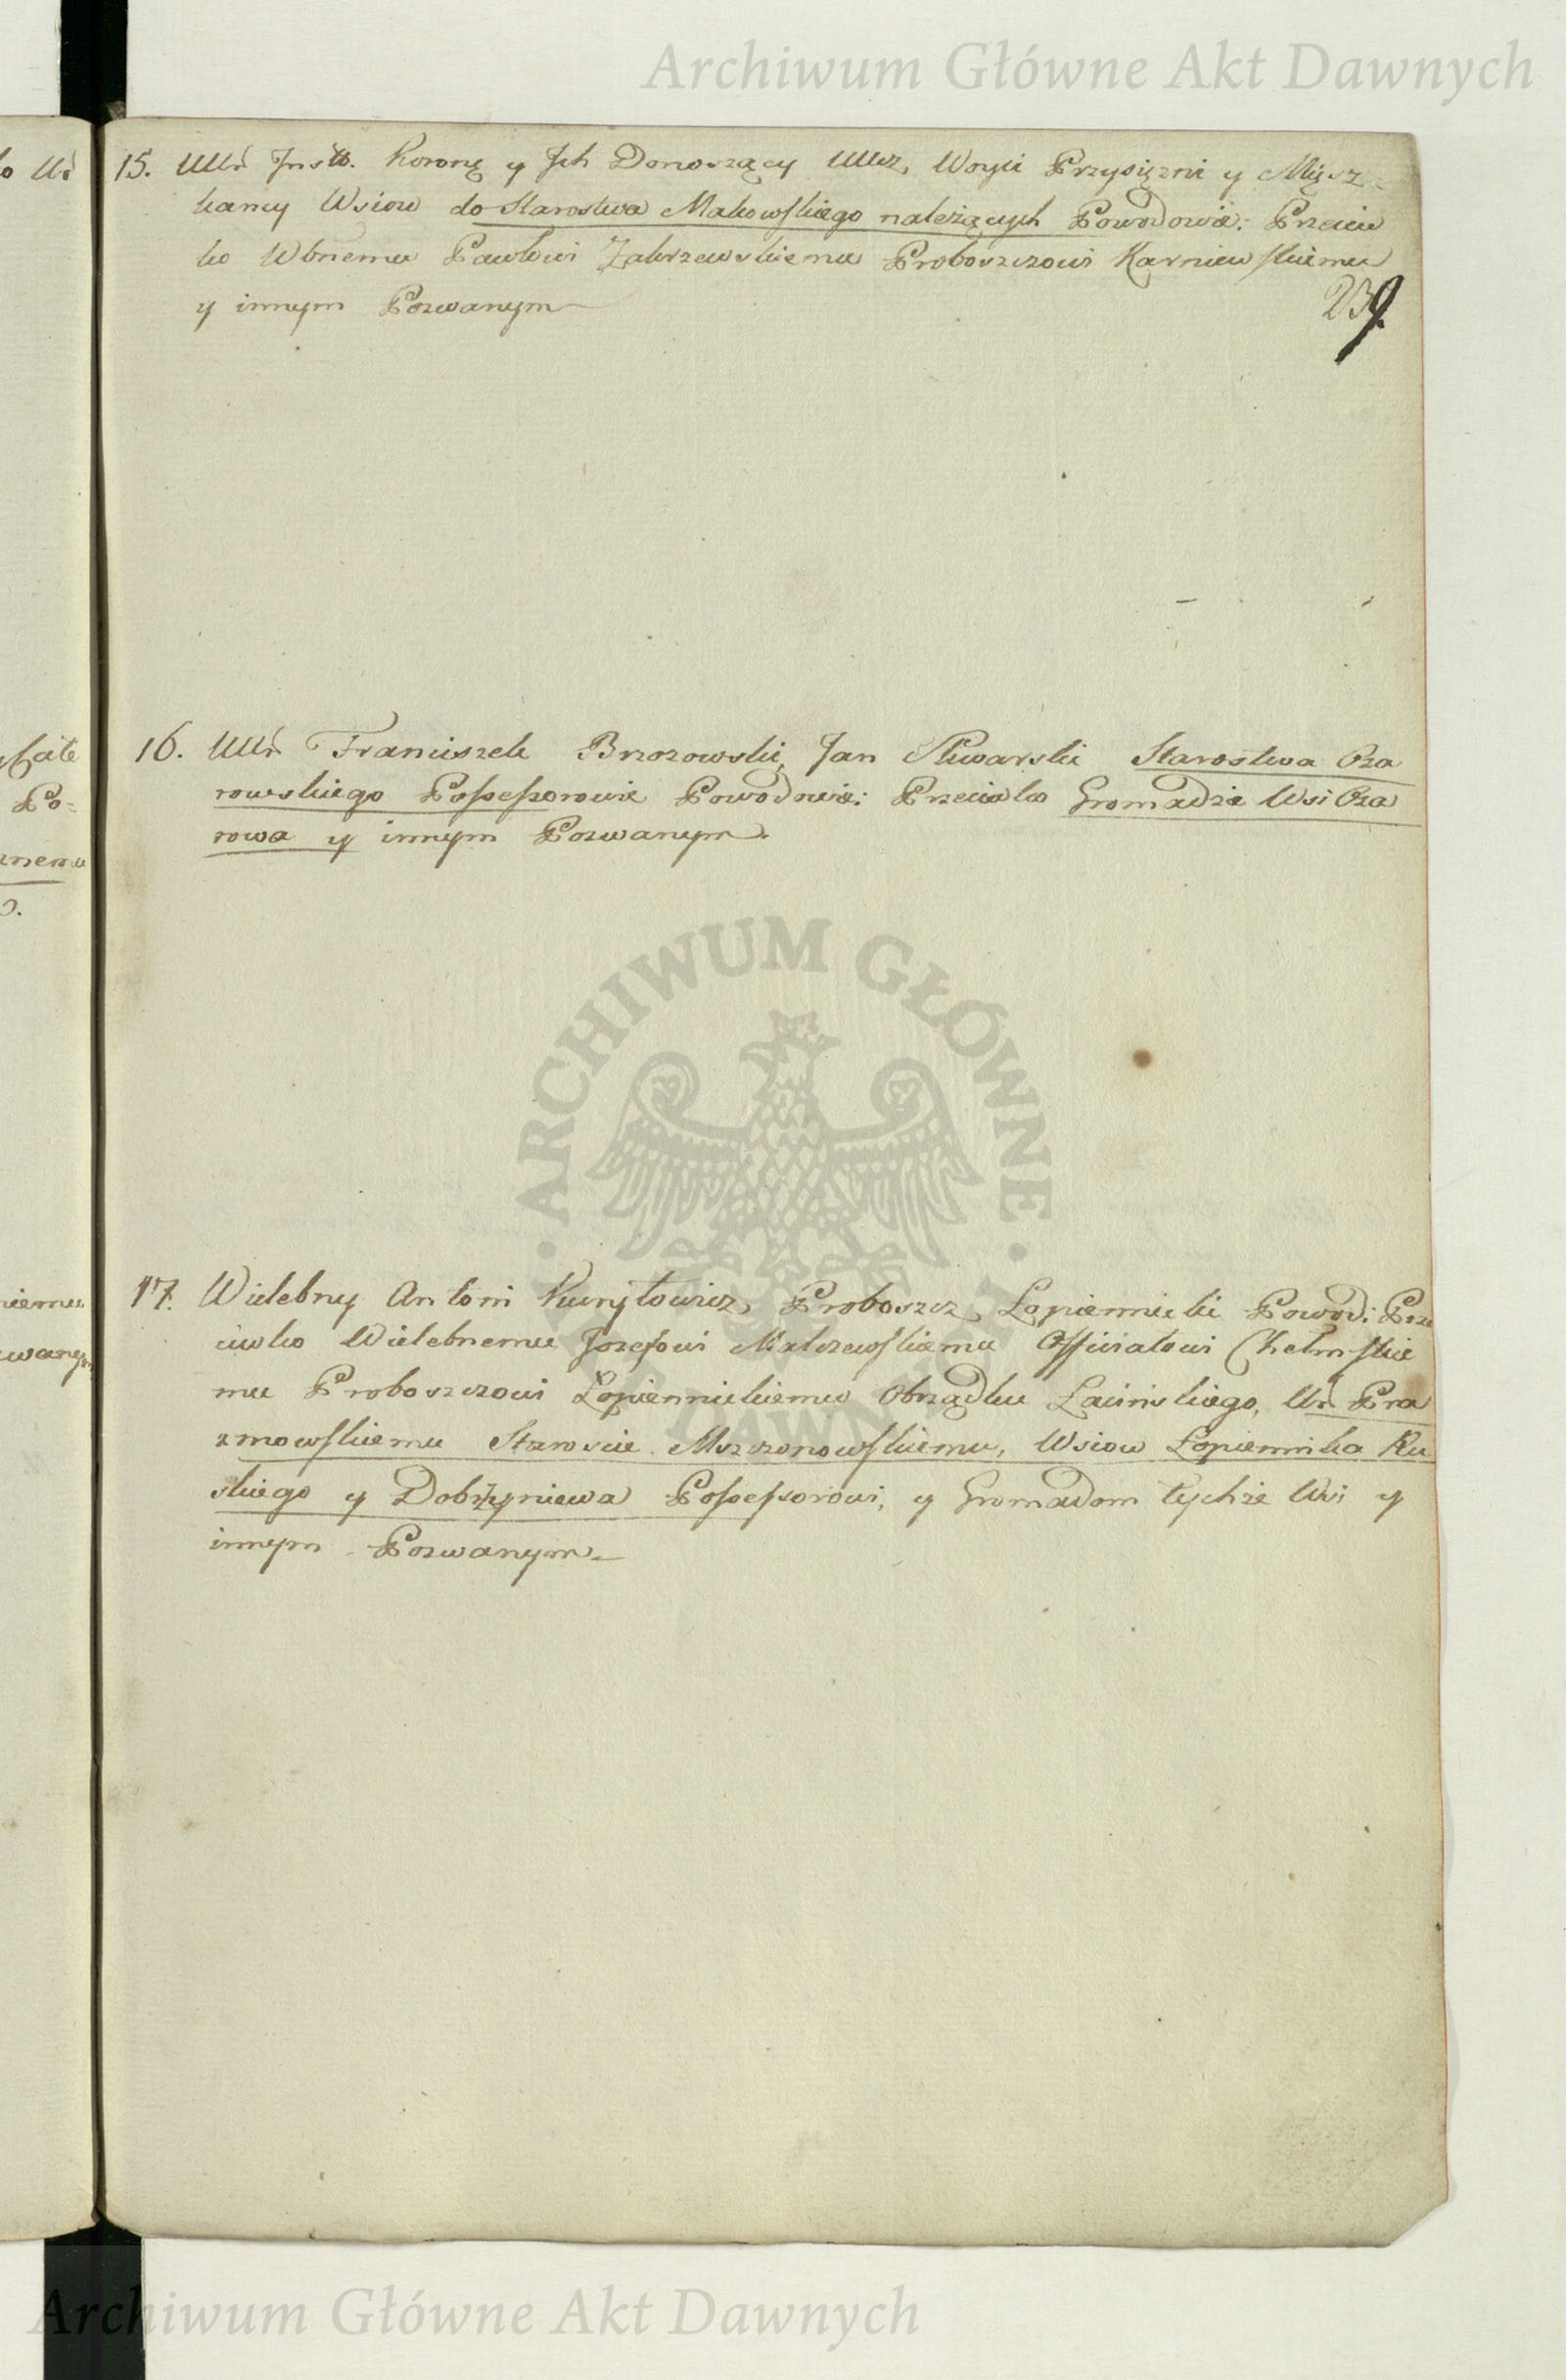 Archiwum Główne Akt Dawnych
15. UUr Instt. Koronę y Jch Donoszący UUrz, Woyci Przysiężni y Miesz-
kancy Wsiow do Starostwa Makowskiego należących Powodowie: Przeciw
ko Wbnemu Pawłowi Zakrzewskiemu Proboszczowi Karniewskiemu
y innym Pozwanym
239.
16. UUr Franciszek Brzozowski, Jan Sliwarski Starostwa Oza
rowskiego Possessorowie Powodowie: Przeciwko Gromadzie Wsi Oza
rowa y innym Pozwanym.
17. Wielebny Antoni Kuryłowicz, Proboszcz Łopiennicki Powod: Prze
ciwko Wielebnemu Jozefowi Malczewskiemu Officiałowi Chełmskie
mu Proboszczowi Łopiennickiemu Obrządku Łacinskiego, Ur. Pra
zmowskiemu Staroscie Mszczonowskiemu, Wsiow Łopiennika Ru
skiego y Dobrzyniewa Possessorowi, y Gromadom tychże Wsi y
innym Pozwanym
ARCHIWUM GŁÓWNE AKT DAWNYCH
Archiwum Główne Akt Dawnych